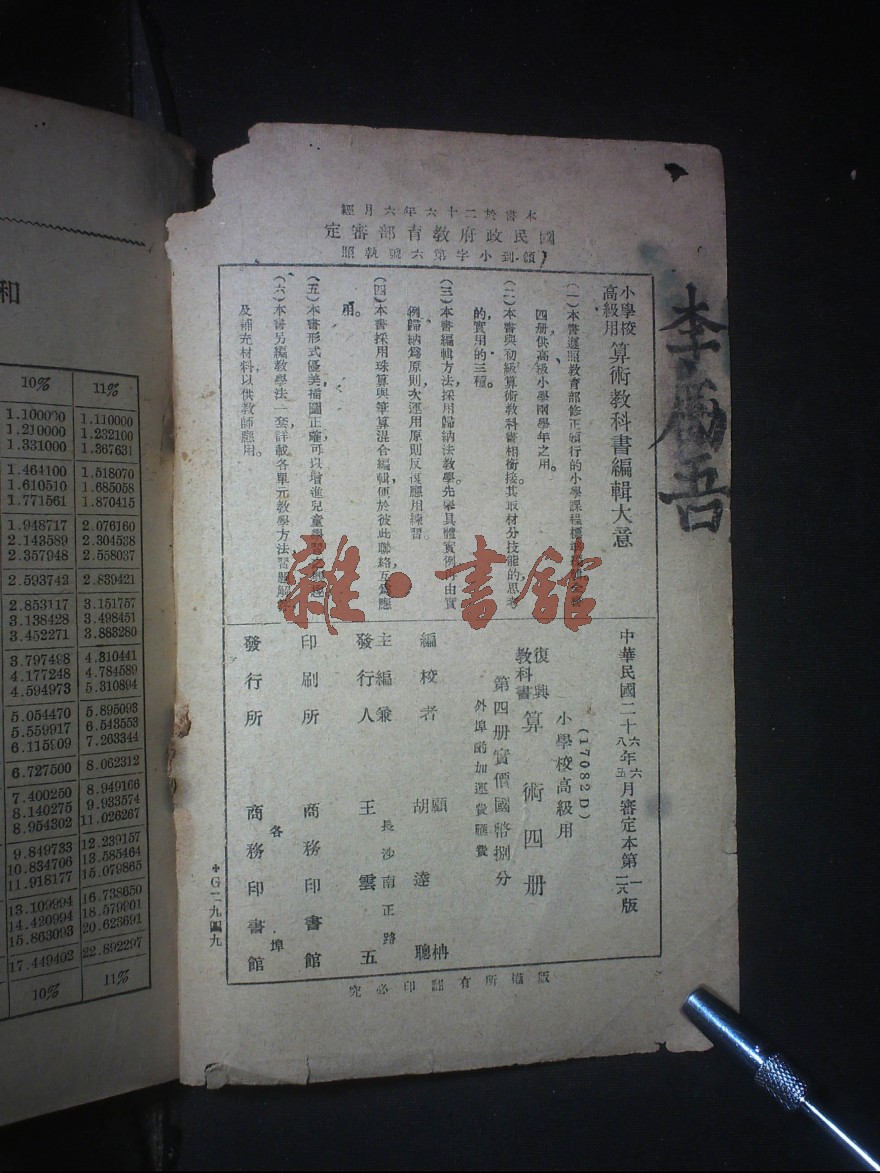 和
10% 11%
1.100000 1.110000
1.210000 1.232100
1.331000 1.367631
1.464100 1.518070
1.610510 1.685058
1.771561 1.870415
1.948717 2.076160
2.143589 2.304538
2.357948 2.558037
2.593742 2.839421
2.853117 3.151757
3.138428 3.498451
3.452271 3.883280
3.797498 4.310441
4.177248 4.784589
4.594973 5.310894
5.054470 5.895093
5.559917 6.543553
6.115909 7.263344
6.727500 8.062312
7.400250 8.949166
8.140275 9.933574
8.954302 11.026267
9.849733 12.239157
10.834706 13.585464
11.918177 15.079865
13.109994 16.738650
14.420994 18.579901
15.863093 20.623691
17.449402 22.892297
10% 11%
本書於二十六年六月經
國民政府教育部審定
領到小字第六號執照
李
吾
小學校高級用 算術教科書編輯大意
(一)本書遵照教育部修正頒行的小學課程標準
四册,供高級小學兩學年之用。
(二)本書與初級算術教科書相銜接。其取材分技能的,思考
的,實用的三種。
(三)本書編輯方法,採用歸納法教學。先舉具體實例,再由實
例歸納爲原則,次運用原則反復應用練習。
(四)本書採用珠算與筆算混合編輯,便於彼此聯絡,互爲應
用。
(五)本書形式優美,插圖正確,可以增進兒童
(六)本書另編教學法一套,詳載各單元教學方法,習題解
及補充材料,以供教師應用。
雜·書館
中華民國二十六年六月審定本第一版
八 五 二六
(17082D)
小學校高級用
復興教科書 算術四册
第四册實價國幣捌分
外埠酌加運費匯費
編校者 顧柟 胡達聰
主編兼發行人 王雲五
長沙南正路
印刷所 商務印書館
發行所 商務印書館
各埠
版權所有翻印必究
*G二九四九